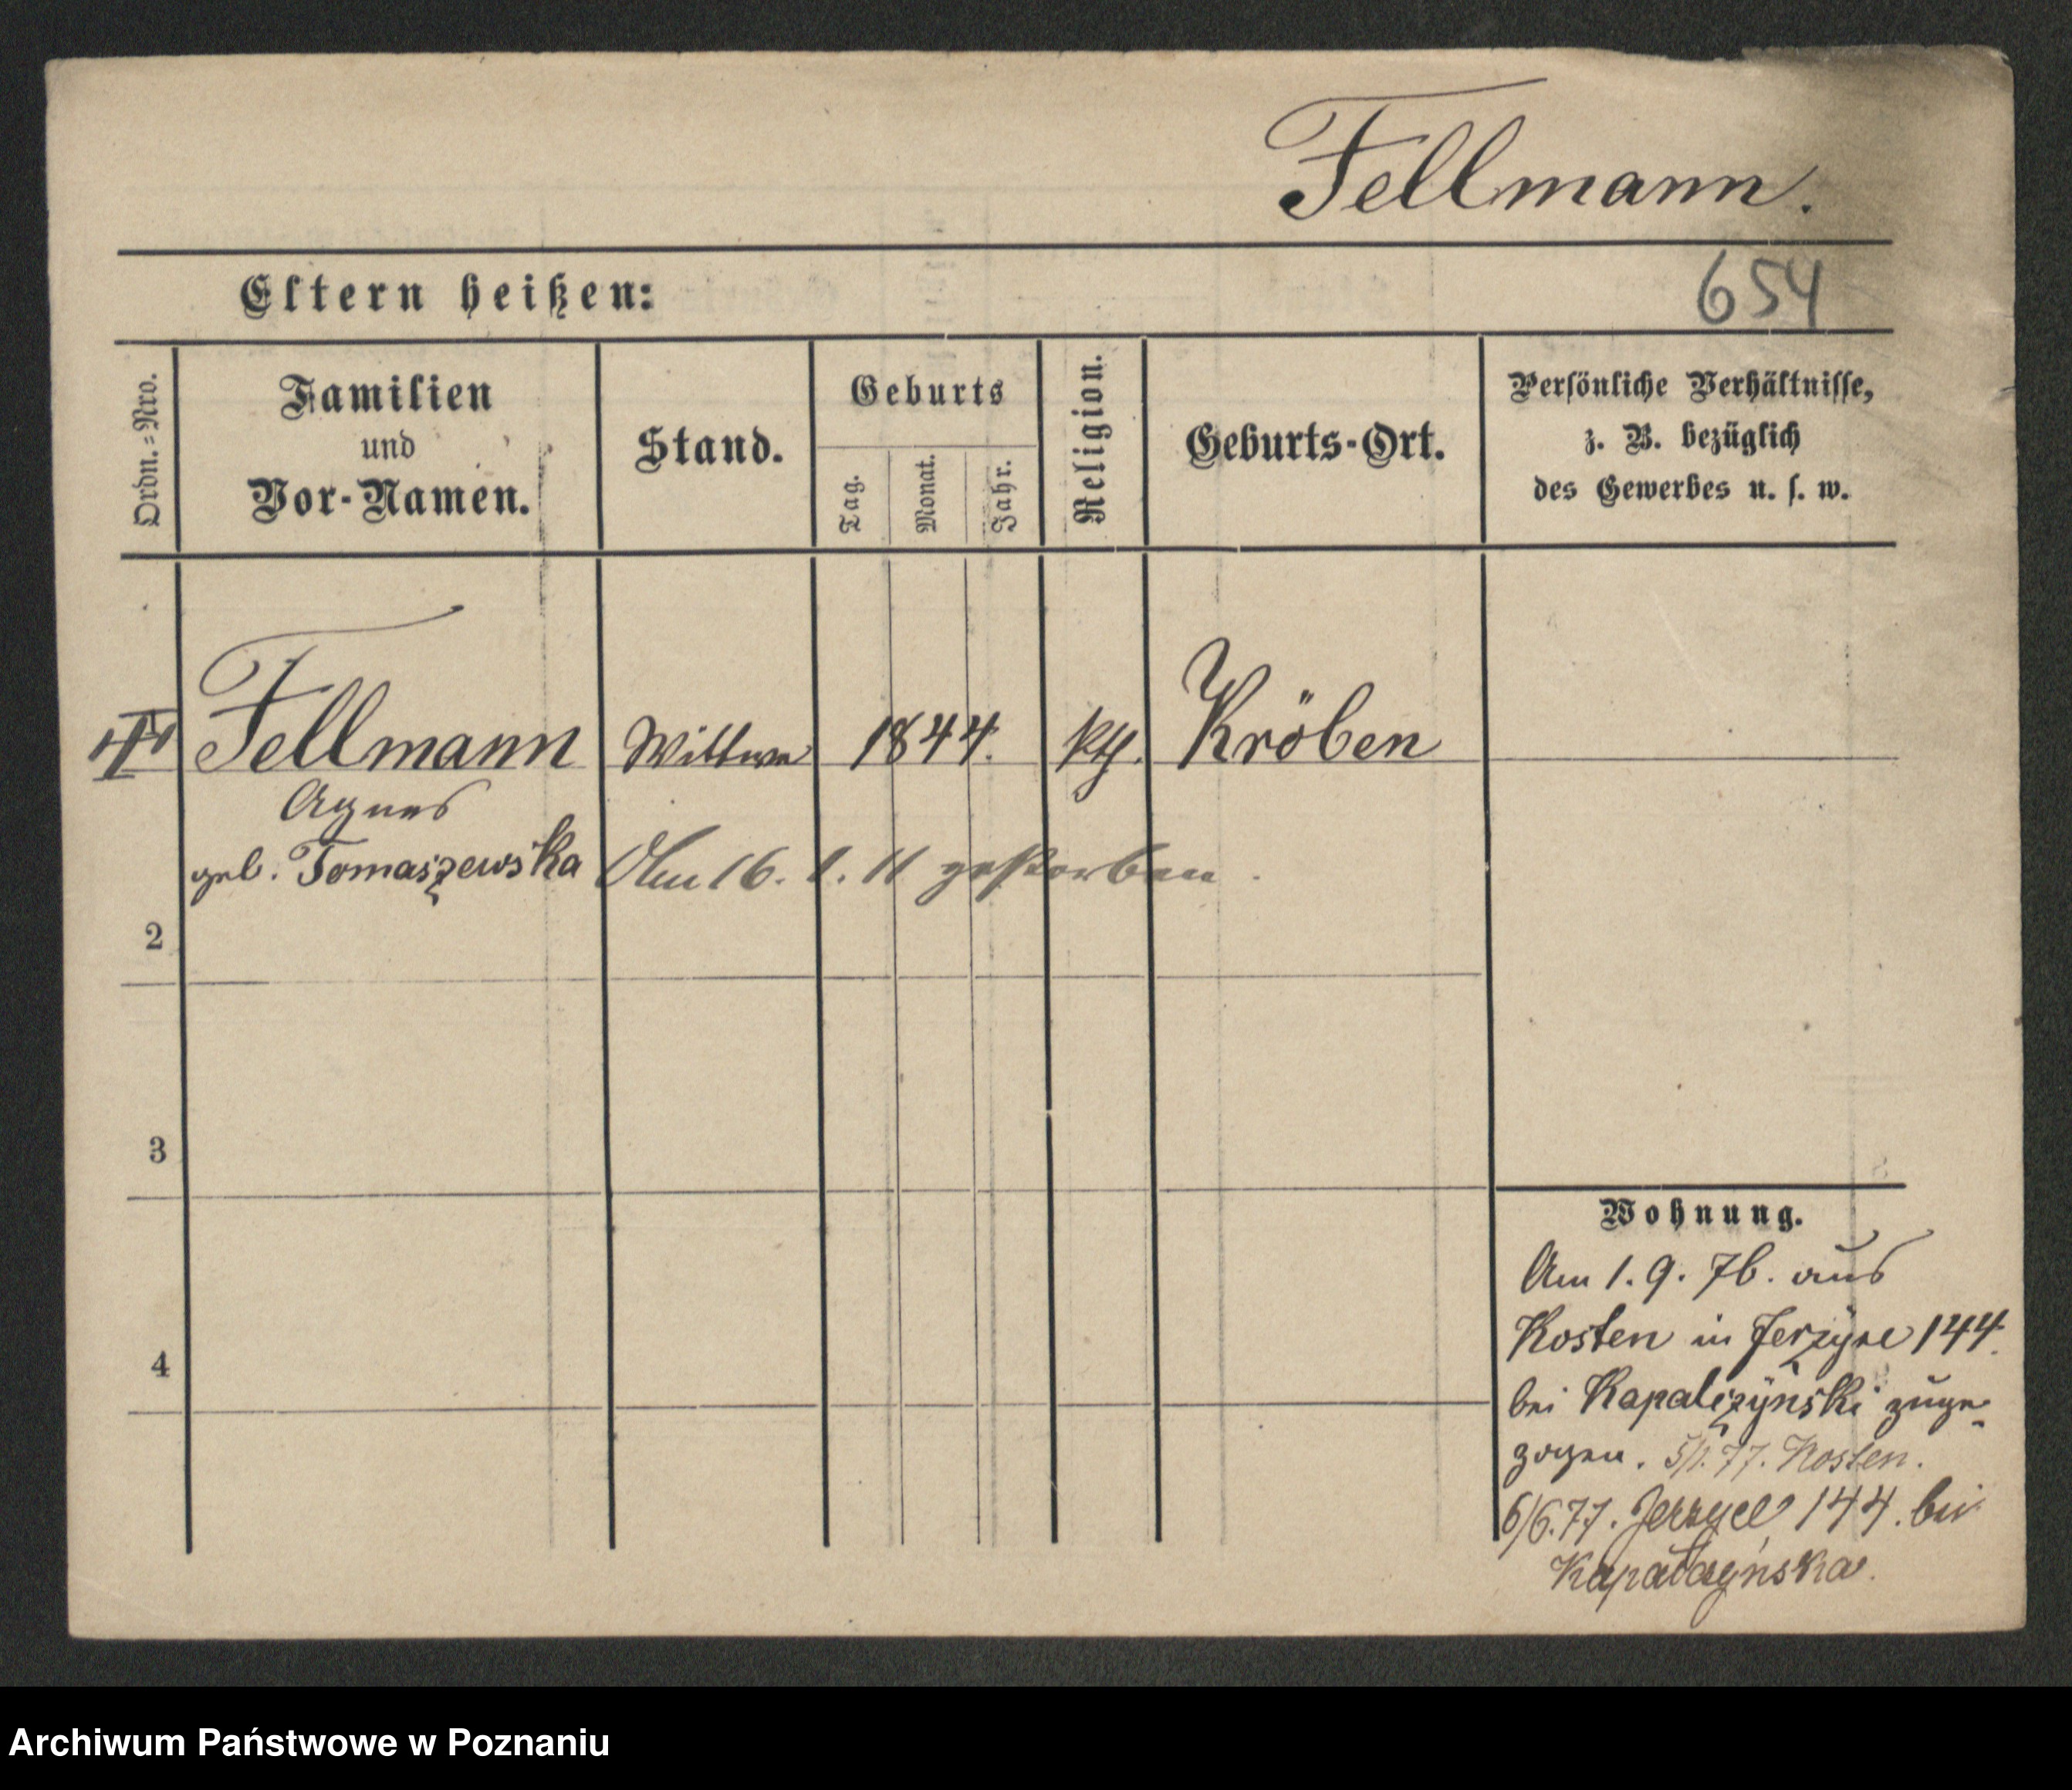 Fellmann.
Eltern heißen:
654
Ordn.=Nro.
Familien
und
Vor-Namen.
Stand.
Geburts
Tag.
Monat.
Jahr.
Religion.
Geburts-Ort.
Persönliche Verhältnisse,
z. B. bezüglich
des Gewerbes u. s. w.
Fellmann Wittwe 1844. kth. Kröben
Agnes
geb. Tomaszewska Am 16. 1. 11 gestorben.
2
3
4
Wohnung.
Am 1. 9. 76. aus
Kosten in Jerzyce 144.
bei Kapalczynski zuge-
zogen. 5/1. 77. Kosten.
6/6. 77. Jerzyce 144. bei
Archiwum Państwowe w Poznaniu